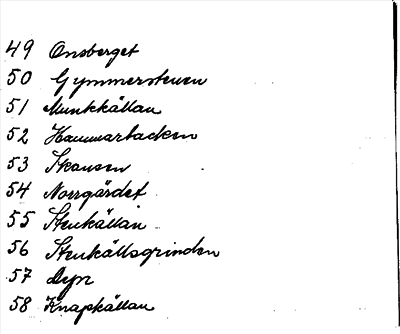 49 Onsberget
50 Gymmerstenen
51 Munkkällan
52 Hammarbacken
53 Skansen
54 Norrgärdet
55 Stenkällan
56 Stenkällsgrinden
57 Dyn
58 Knapkällan